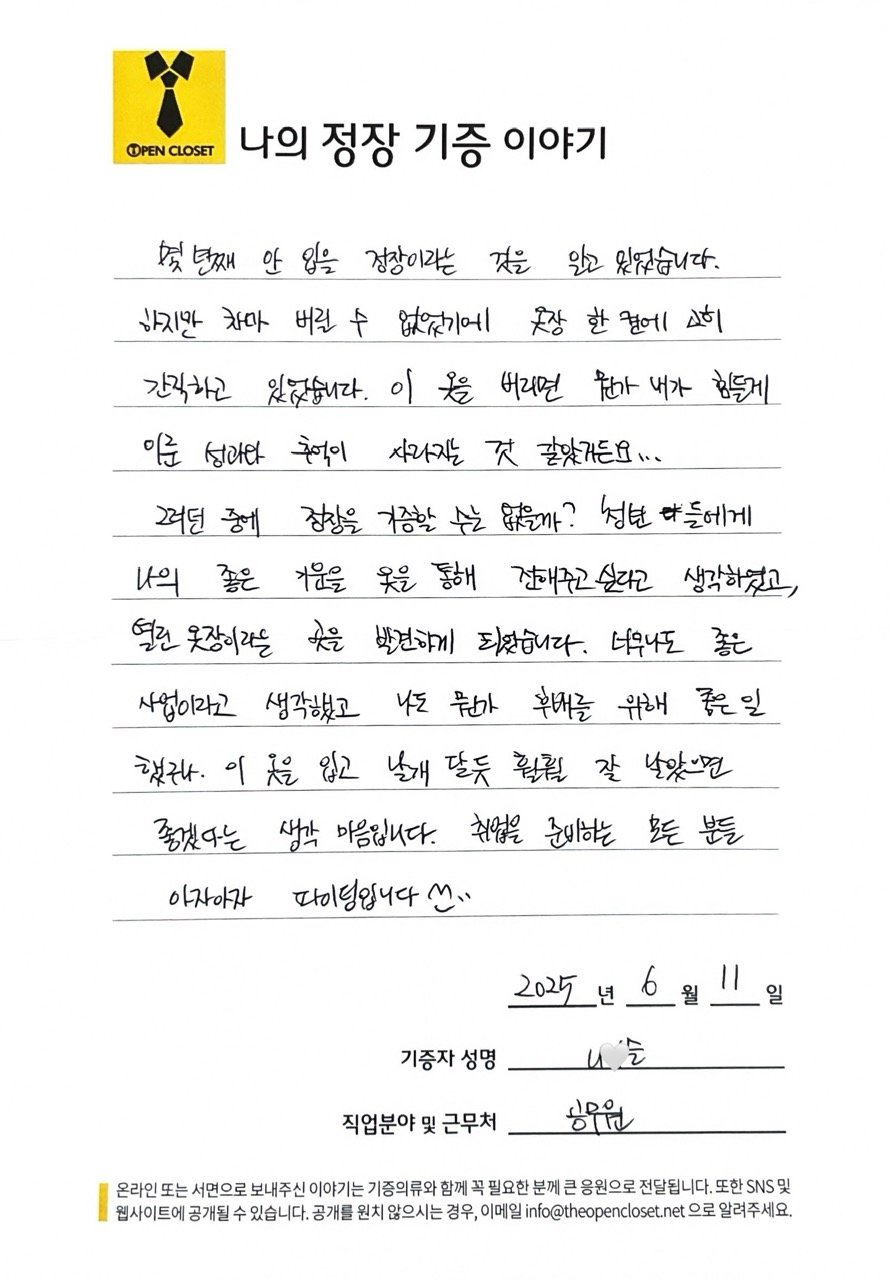 OPEN CLOSET
나의 정장 기증 이야기
몇 년째 안 입을 정장이라는 것을 알고 있었습니다.
하지만 차마 버릴 수 없었기에 옷장 한 켠에 고히
간직하고 있었습니다. 이 옷을 버리면 뭔가 내가 힘들게
이룬 성과와 추억이 사라지는 것 같았거든요...
그러던 중에 정장을 기증할 수는 없을까? 청년 들에게
나의 좋은 기운을 옷을 통해 전해주고 싶다고 생각하였고,
열린 옷장이라는 곳을 발견하게 되었습니다. 너무나도 좋은
사업이라고 생각했고 나도 뭔가 후배를 위해 좋은 일
했구나. 이 옷을 입고 날개 달듯 훨훨 잘 날았으면
좋겠다는 생각 마음입니다. 취업을 준비하는 모든 분들
아자아자 파이팅입니다
2025년 6월 11일
기증자 성명 나 슬
직업분야 및 근무처 공무원
온라인 또는 서면으로 보내주신 이야기는 기증의류와 함께 꼭 필요한 분께 큰 응원으로 전달됩니다. 또한 SNS 및
웹사이트에 공개될 수 있습니다. 공개를 원치 않으시는 경우, 이메일 info@theopencloset.net 으로 알려주세요.